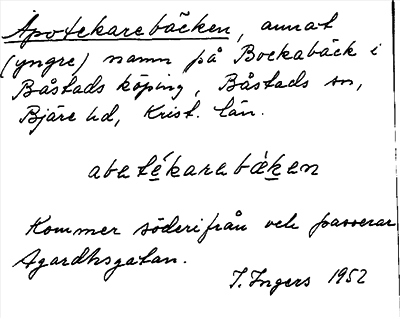 Apotekarebäcken, annat
(yngre) namn på Bockabäck i
Båstads köping, Båstads sn,
Bjäre hd, Krist. län.
abetékarebäken
Kommer söderifrån och passerar
Agardhsgatan.
I. Ingers 1952